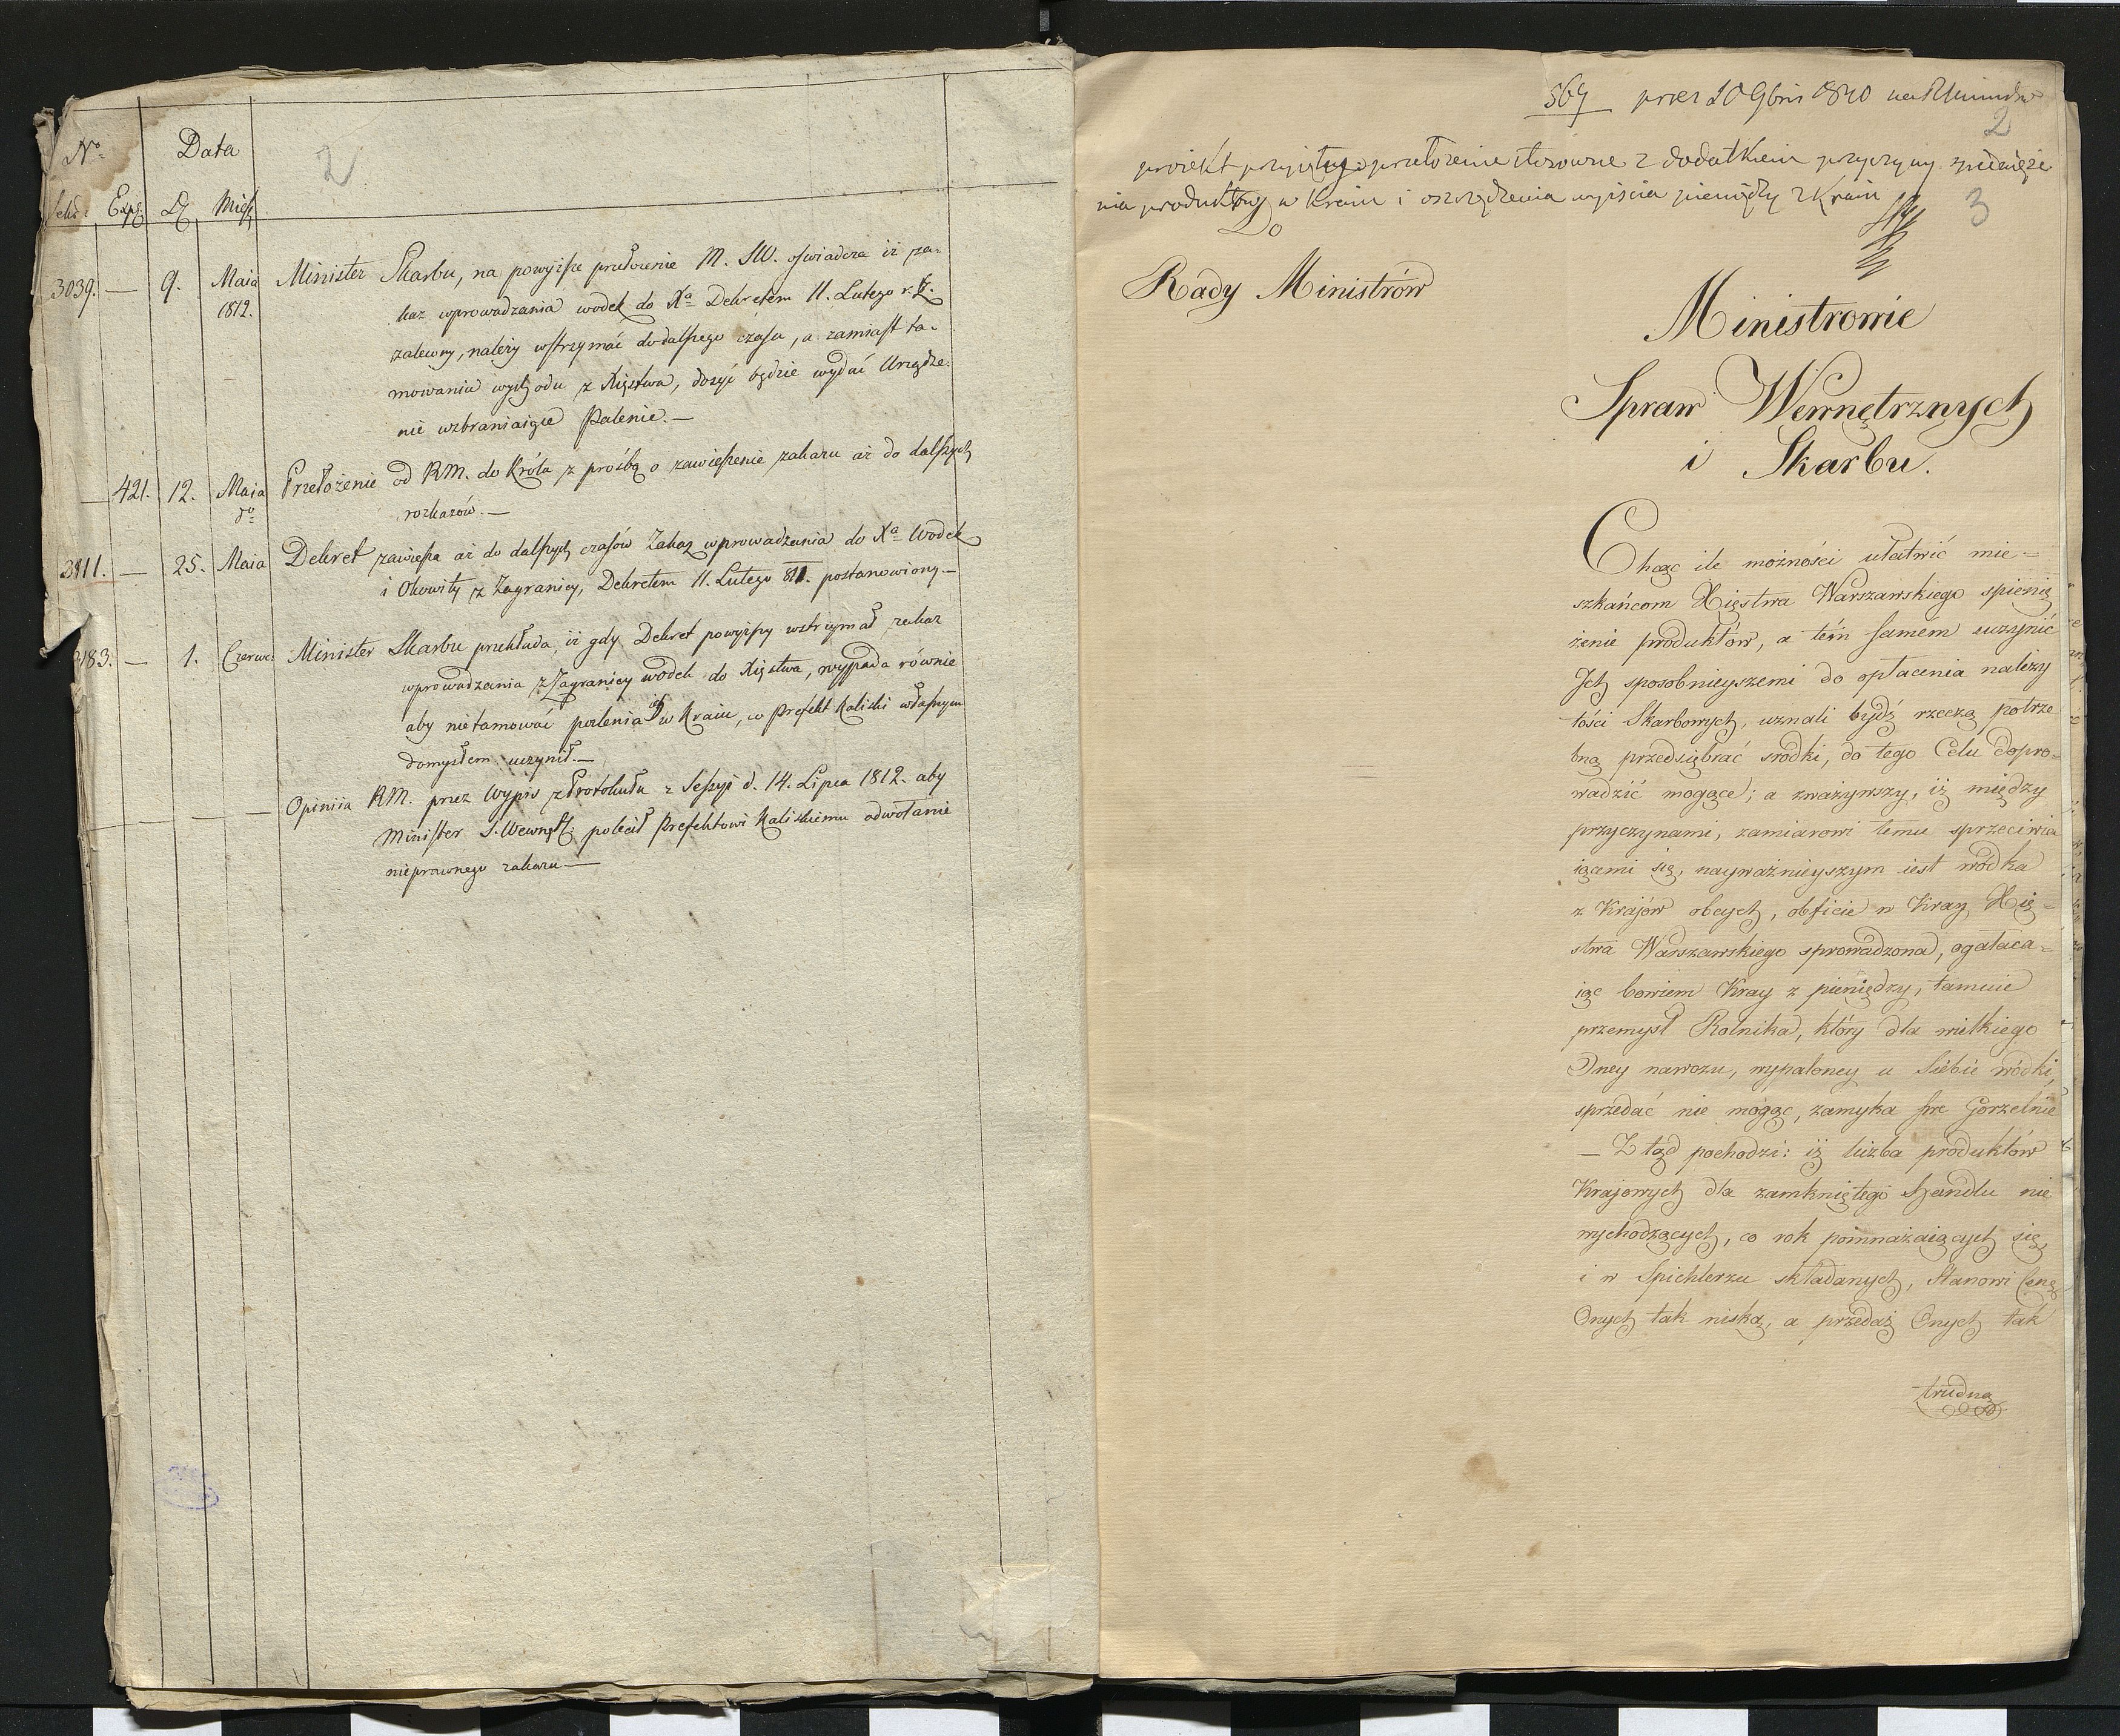 No. Data
2
Exp. D. Mies.
3039. — 9. Maia Minister Skarbu, na powyższe przełożenie M. SW. oświadcza iż za-
1812. kaz wprowadzania wodek do Xa Dekretem 11. Lutego r. z.
zalecony, należy wstrzymać do dalszego czasu, a zamiast ta-
mowania wychodu z Xięstwa, dosyć będzie wydać Urządze-
nie wzbraniaiące Palenie. —
— 421. 12. Maia Przełożenie od RM. do Króla z prośbą o zawieszenie zakazu aż do dalszych
do rozkazów. —
3111. — 25. Maia Dekret zawiesza aż do dalszych czasów Zakaz wprowadzania do Xa Wodek
i Okowity z Zagranicy, Dekretem 11. Lutego 811. postanowiony —
3183. — 1. Czerwc: Minister Skarbu przekłada, iż gdy Dekret powyższy wstrzymał zakaz
wprowadzania z Zagranicy wodek do Xięstwa, wypada równie
aby nietamować palenia ich w Kraiu, co Prefekt Kaliski własnym
domysłem uczynił. —
— — — Opiniia RM. przez Wypis z Protokułu z Sessyi d. 14. Lipca 1812. aby
Minister S. Wewnętz: polecił Prefektowi Kaliskiemu odwołanie
nieprawnego zakazu —
569 przez 20 9bris 1810 na R Ministrów
2
proiekt przyięty przełożenie stosowne z dodatkiem przyczyny spienięże
nia produktow w Kraiu i oszczędzenia wyiścia pieniędzy z Kraiu
3
Do
Rady Ministrów
Ministrowie
Spraw Wewnętrznych
i Skarbu.
Chcąc ile możności ułatwić mie-
szkańcom Xięstwa Warszawskiego spienię
żenie produktów, a tém samém uczynić
Jch sposobnieyszemi do opłacenia należy
tości Skarbowych, uznali bydź rzeczą potrze
bną przedsiębrać srodki, do tego Celu dopro-
wadzić mogące; a zważywszy, iż między
przyczynami, zamiarowi temu sprzeciwia
iącemi się, nayważnieyszym iest wódka
z Krajów obcych, obficie w Kray Xię-
stwa Warszawskiego sprowadzona, ogałaca-
iąc bowiem Kray z pieniędzy, tamuie
przemysł Rolnika, który dla wielkiego
Oney nawozu, wypaloney u Siebie wódki,
sprzedać nie mogąc, zamyka swe Gorzelnie
— Z tąd pochodzi: iż liczba produktów
Krajowych dla zamkniętego Handlu nie
wychodzących, co rok pomnażaiących się
i w Spichlerzu składanych, Stanowi Cenę
Onych tak niską, a przedaż Onych tak
trudną